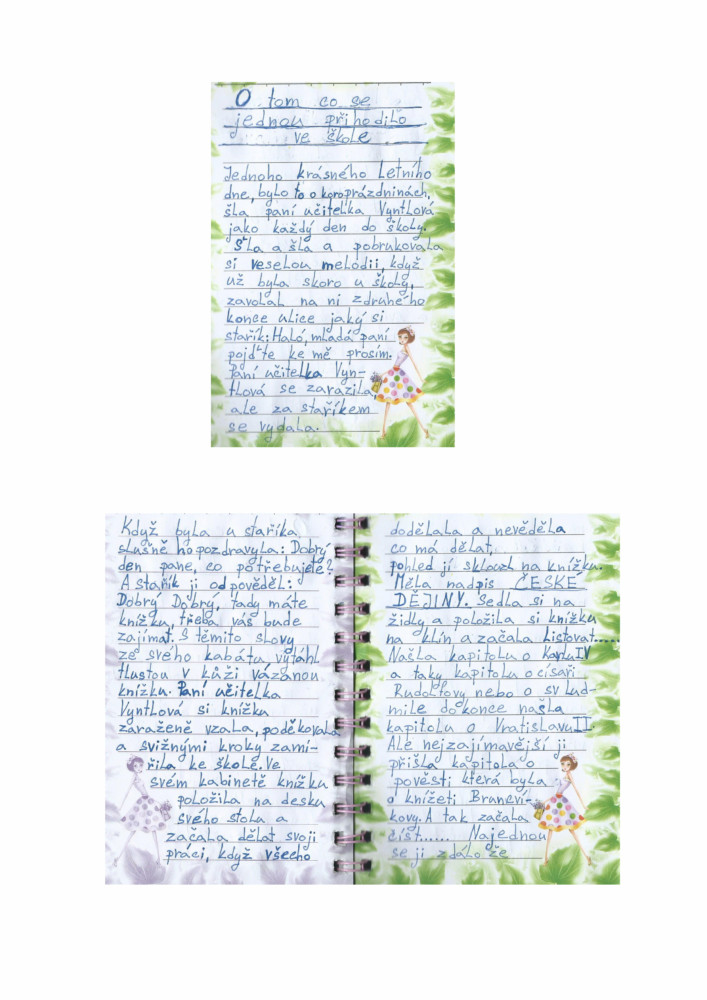 O tom co se
jednou přihodilo
ve škole
Jednoho krásného Letního
dne, bylo to o koroprázdninách,
šla paní učitelka Vyntlová
jako každý den do školy.
Šla a šla a pobrukovala
si veselou melodii, když
už byla skoro u školy,
zavolal na ni zdruhého
konce ulice jaký si
stařík: Haló, mladá paní
pojďte ke mě prosím.
Paní učitelka Vyn-
tlová se zarazila,
ale za staříkem
se vydala.
Když byla u staříka
slušně ho pozdravyla: Dobrý
den pane, co potřebujete?
A stařík ji odpověděl:
Dobrý Dobrý, tady máte
knížku, třeba vás bude
zajímat. S těmito slovy
ze svého kabátu vytáhl
tlustou v kůži vázanou
knížku. Paní učitelka
Vyntlová si knížku
zaraženě vzala, poděkovala
a svižnými kroky zamí-
řila ke škole. Ve
svém kabinetě knížku
položila na desku
svého stolu a
začala dělat svoji
práci, když všecho
dodělala a nevěděla
co má dělat,
pohled jí sklouzl na knížku.
Měla nadpis ČESKÉ
DĚJINY. Sedla si na
židly a položila si knížku
na klín a začala Listovat......
Našla kapitolu o Karlu IV
a taky kapitolu o císaři
Rudolfovy nebo o sv Lud-
mile dokonce našla
kapitolu o Vratislavu II.
Ale nejzajímavější ji
přišla kapitola o
pověsti která byla
o knížeti BrunCví-
kovy. A tak začala
číst...... Najednou
se ji zdálo že